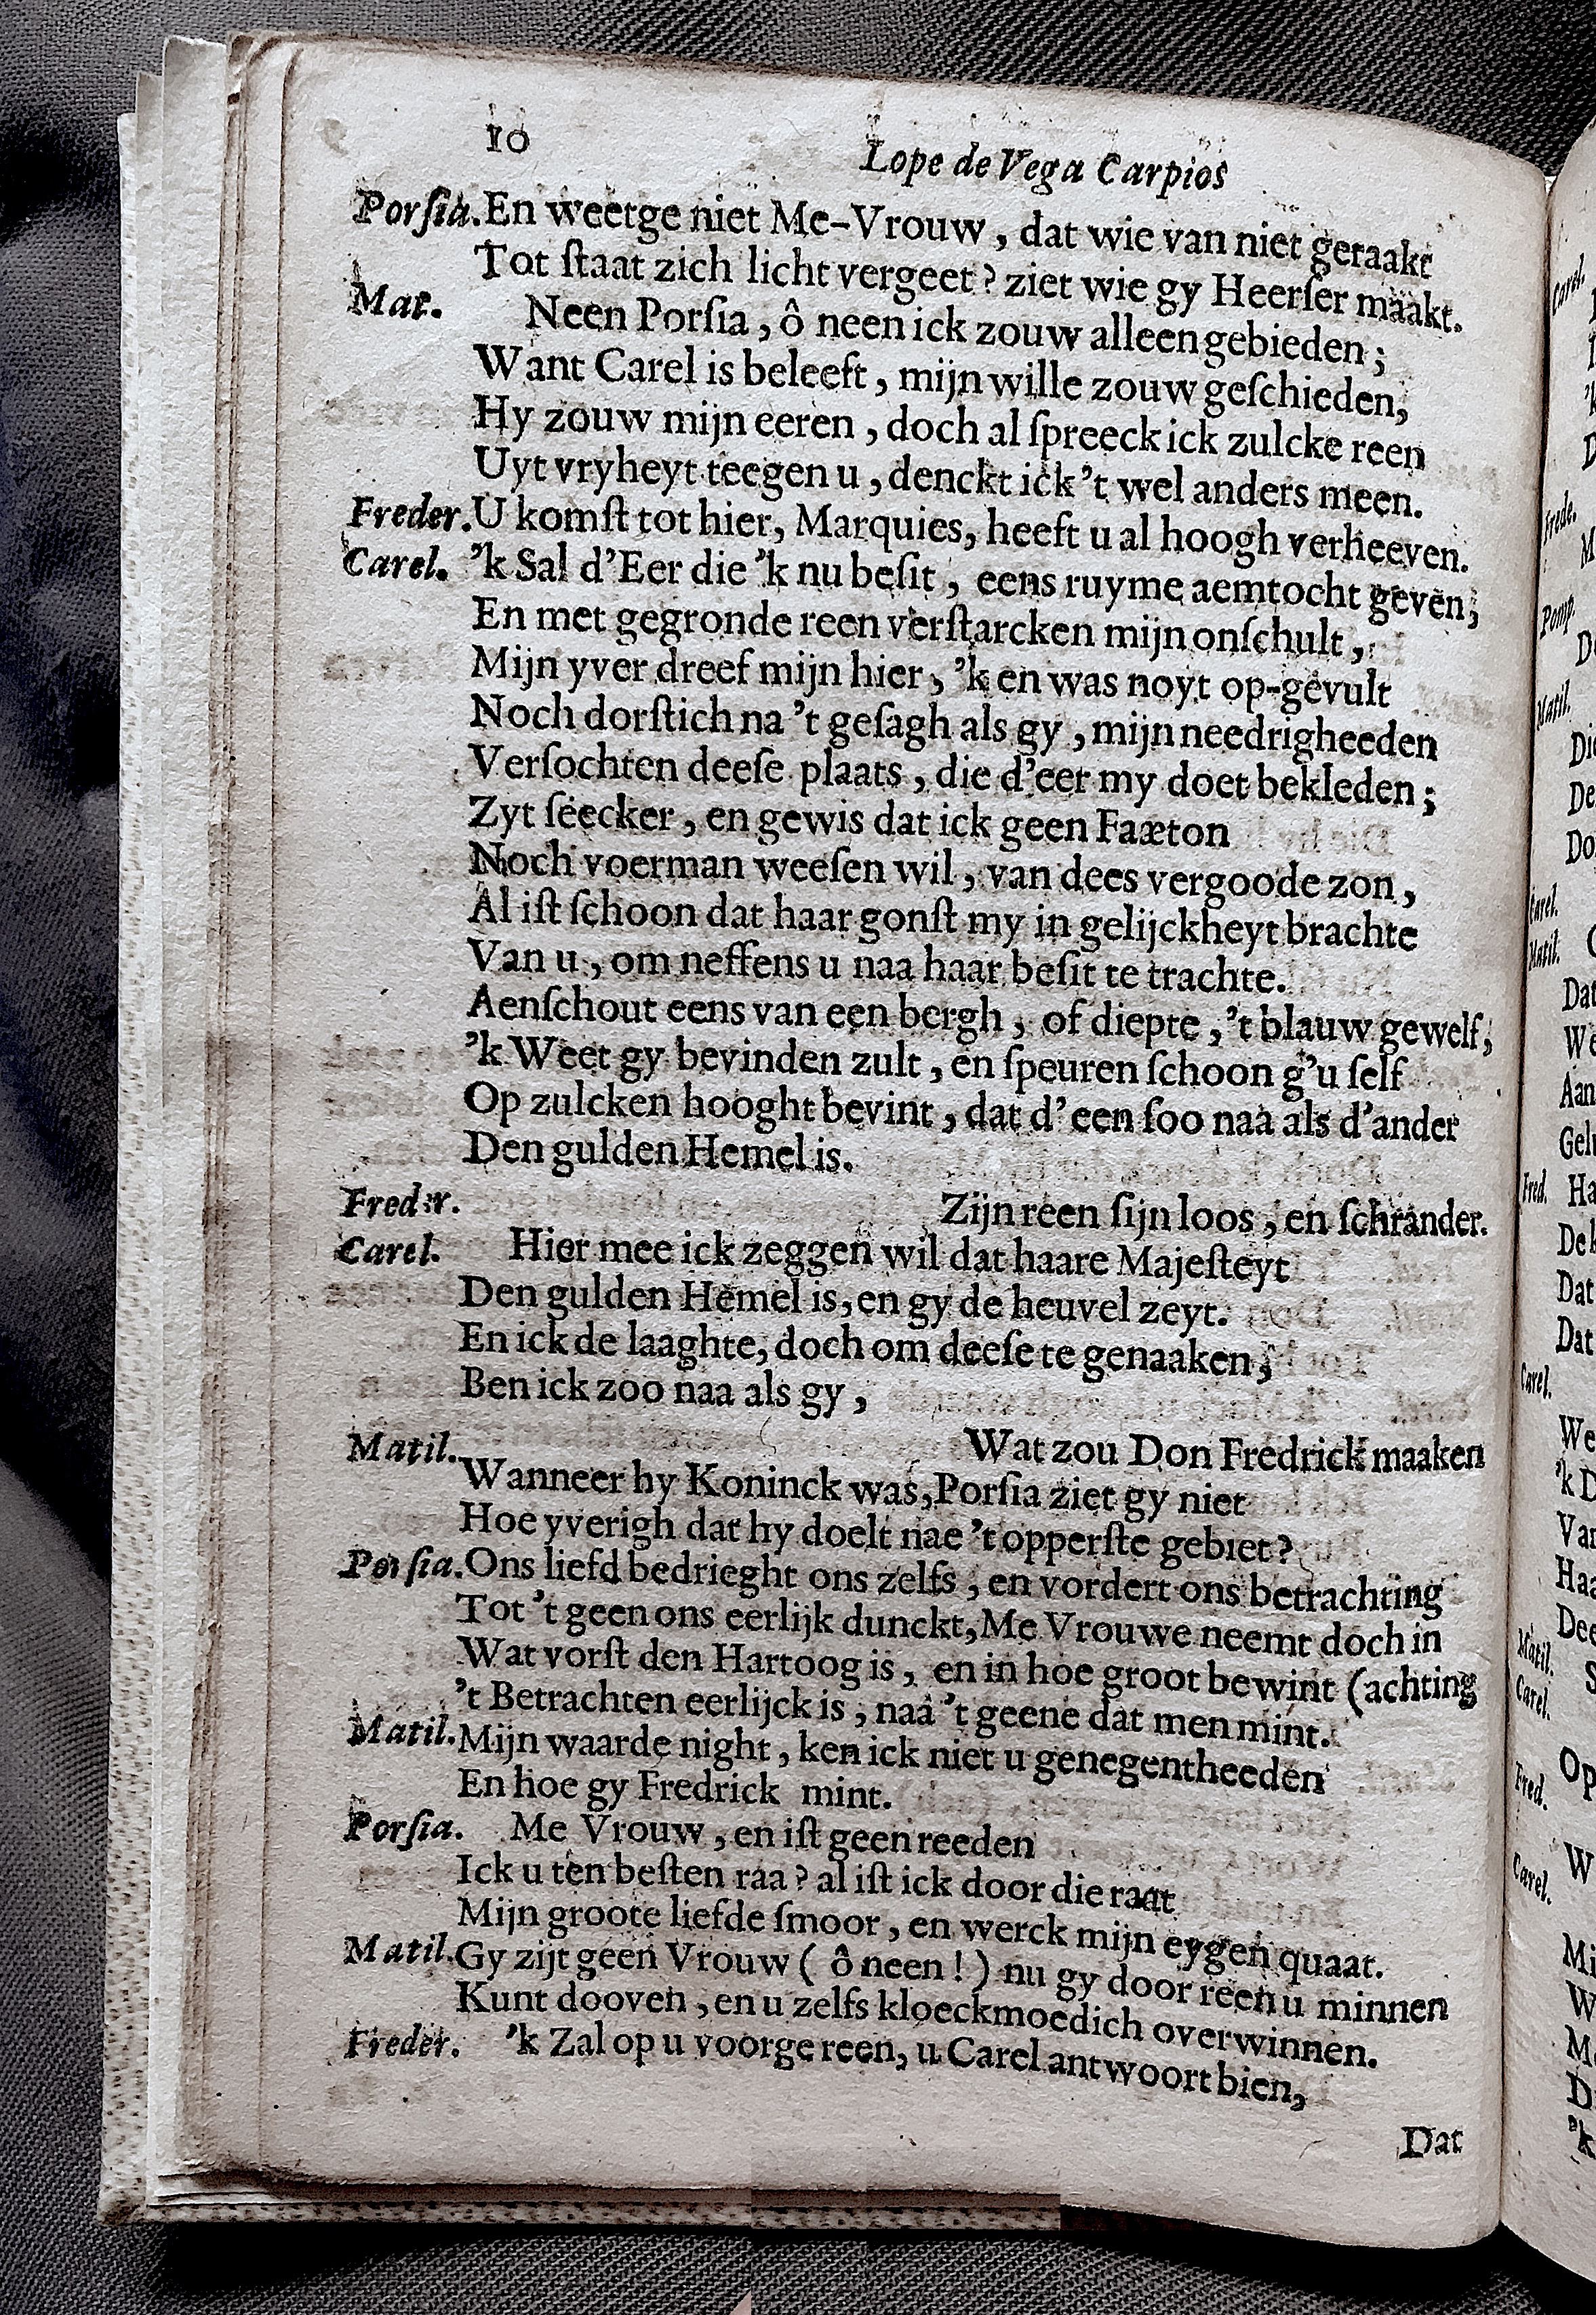 10
Lope de Vega Carpios
Porſia. En weetge niet Me-Vrouw, dat wie van niet geraakt
Tot ſtaat zich licht vergeet? ziet wie gy Heerſer maakt.
Mat. Neen Porſia, ô neen ick zouw alleen gebieden;
Want Carel is beleeft, mijn wille zouw geſchieden,
Hy zouw mijn eeren, doch al ſpreeck ick zulcke reen
Uyt vryheyt teegen u, denckt ick 't wel anders meen.
Freder. U komſt tot hier, Marquies, heeft u al hoogh verheeven.
Carel. 'k Sal d'Eer die 'k nu beſit, eens ruyme aemtocht geven;
En met gegronde reen verſtarcken mijn onſchult,
Mijn yver dreef mijn hier, 'k en was noyt op-gevult
Noch dorſtich na 't geſagh als gy, mijn needrigheeden
Verſochten deeſe plaats, die d'eer my doet bekleden;
Zyt ſeecker, en gewis dat ick geen Faæton
Noch voerman weeſen wil, van dees vergoode zon,
Al iſt ſchoon dat haar gonſt my in gelijckheyt brachte
Van u, om neffens u naa haar beſit te trachte.
Aenſchout eens van een bergh, of diepte, 't blauw gewelf,
'k Weet gy bevinden zult, en ſpeuren ſchoon g'u ſelf
Op zulcken hooght bevint, dat d' een ſoo naa als d'ander
Den gulden Hemel is.
Freder. Zijn reen ſijn loos, en ſchrander.
Carel. Hier mee ick zeggen wil dat haare Majeſteyt
Den gulden Hemel is, en gy de heuvel zeyt.
En ick de laaghte, doch om deeſe te genaaken,
Ben ick zoo naa als gy,
Matil. Wat zou Don Fredrick maaken
Wanneer hy Koninck was, Porſia ziet gy niet
Hoe yverigh dat hy doelt nae 't opperſte gebiet?
Porſia. Ons liefd bedrieght ons zelfs, en vordert ons betrachting
Tot 't geen ons eerlijk dunckt, Me Vrouwe neemt doch in
Wat vorſt den Hartoog is, en in hoe groot bewint (achting
't Betrachten eerlijck is, naa 't geene dat men mint.
Matil. Mijn waarde night, ken ick niet u genegentheeden
En hoe gy Fredrick mint.
Porſia. Me Vrouw, en iſt geen reeden
Ick u ten beſten raa? al iſt ick door die raat
Mijn groote liefde ſmoor, en werck mijn eygen quaat.
Matil. Gy zijt geen Vrouw ( ô neen! ) nu gy door reen u minnen
Kunt dooven, en u zelfs kloeckmoedich overwinnen.
Freder. 'k Zal op u voorge reen, u Carel antwoort bien,
Dat
Carel.
Frede.
Pomp.
Matil.
Carel.
Matil.
Fred.
Carel.
Matil.
Carel.
Fred.
Carel.